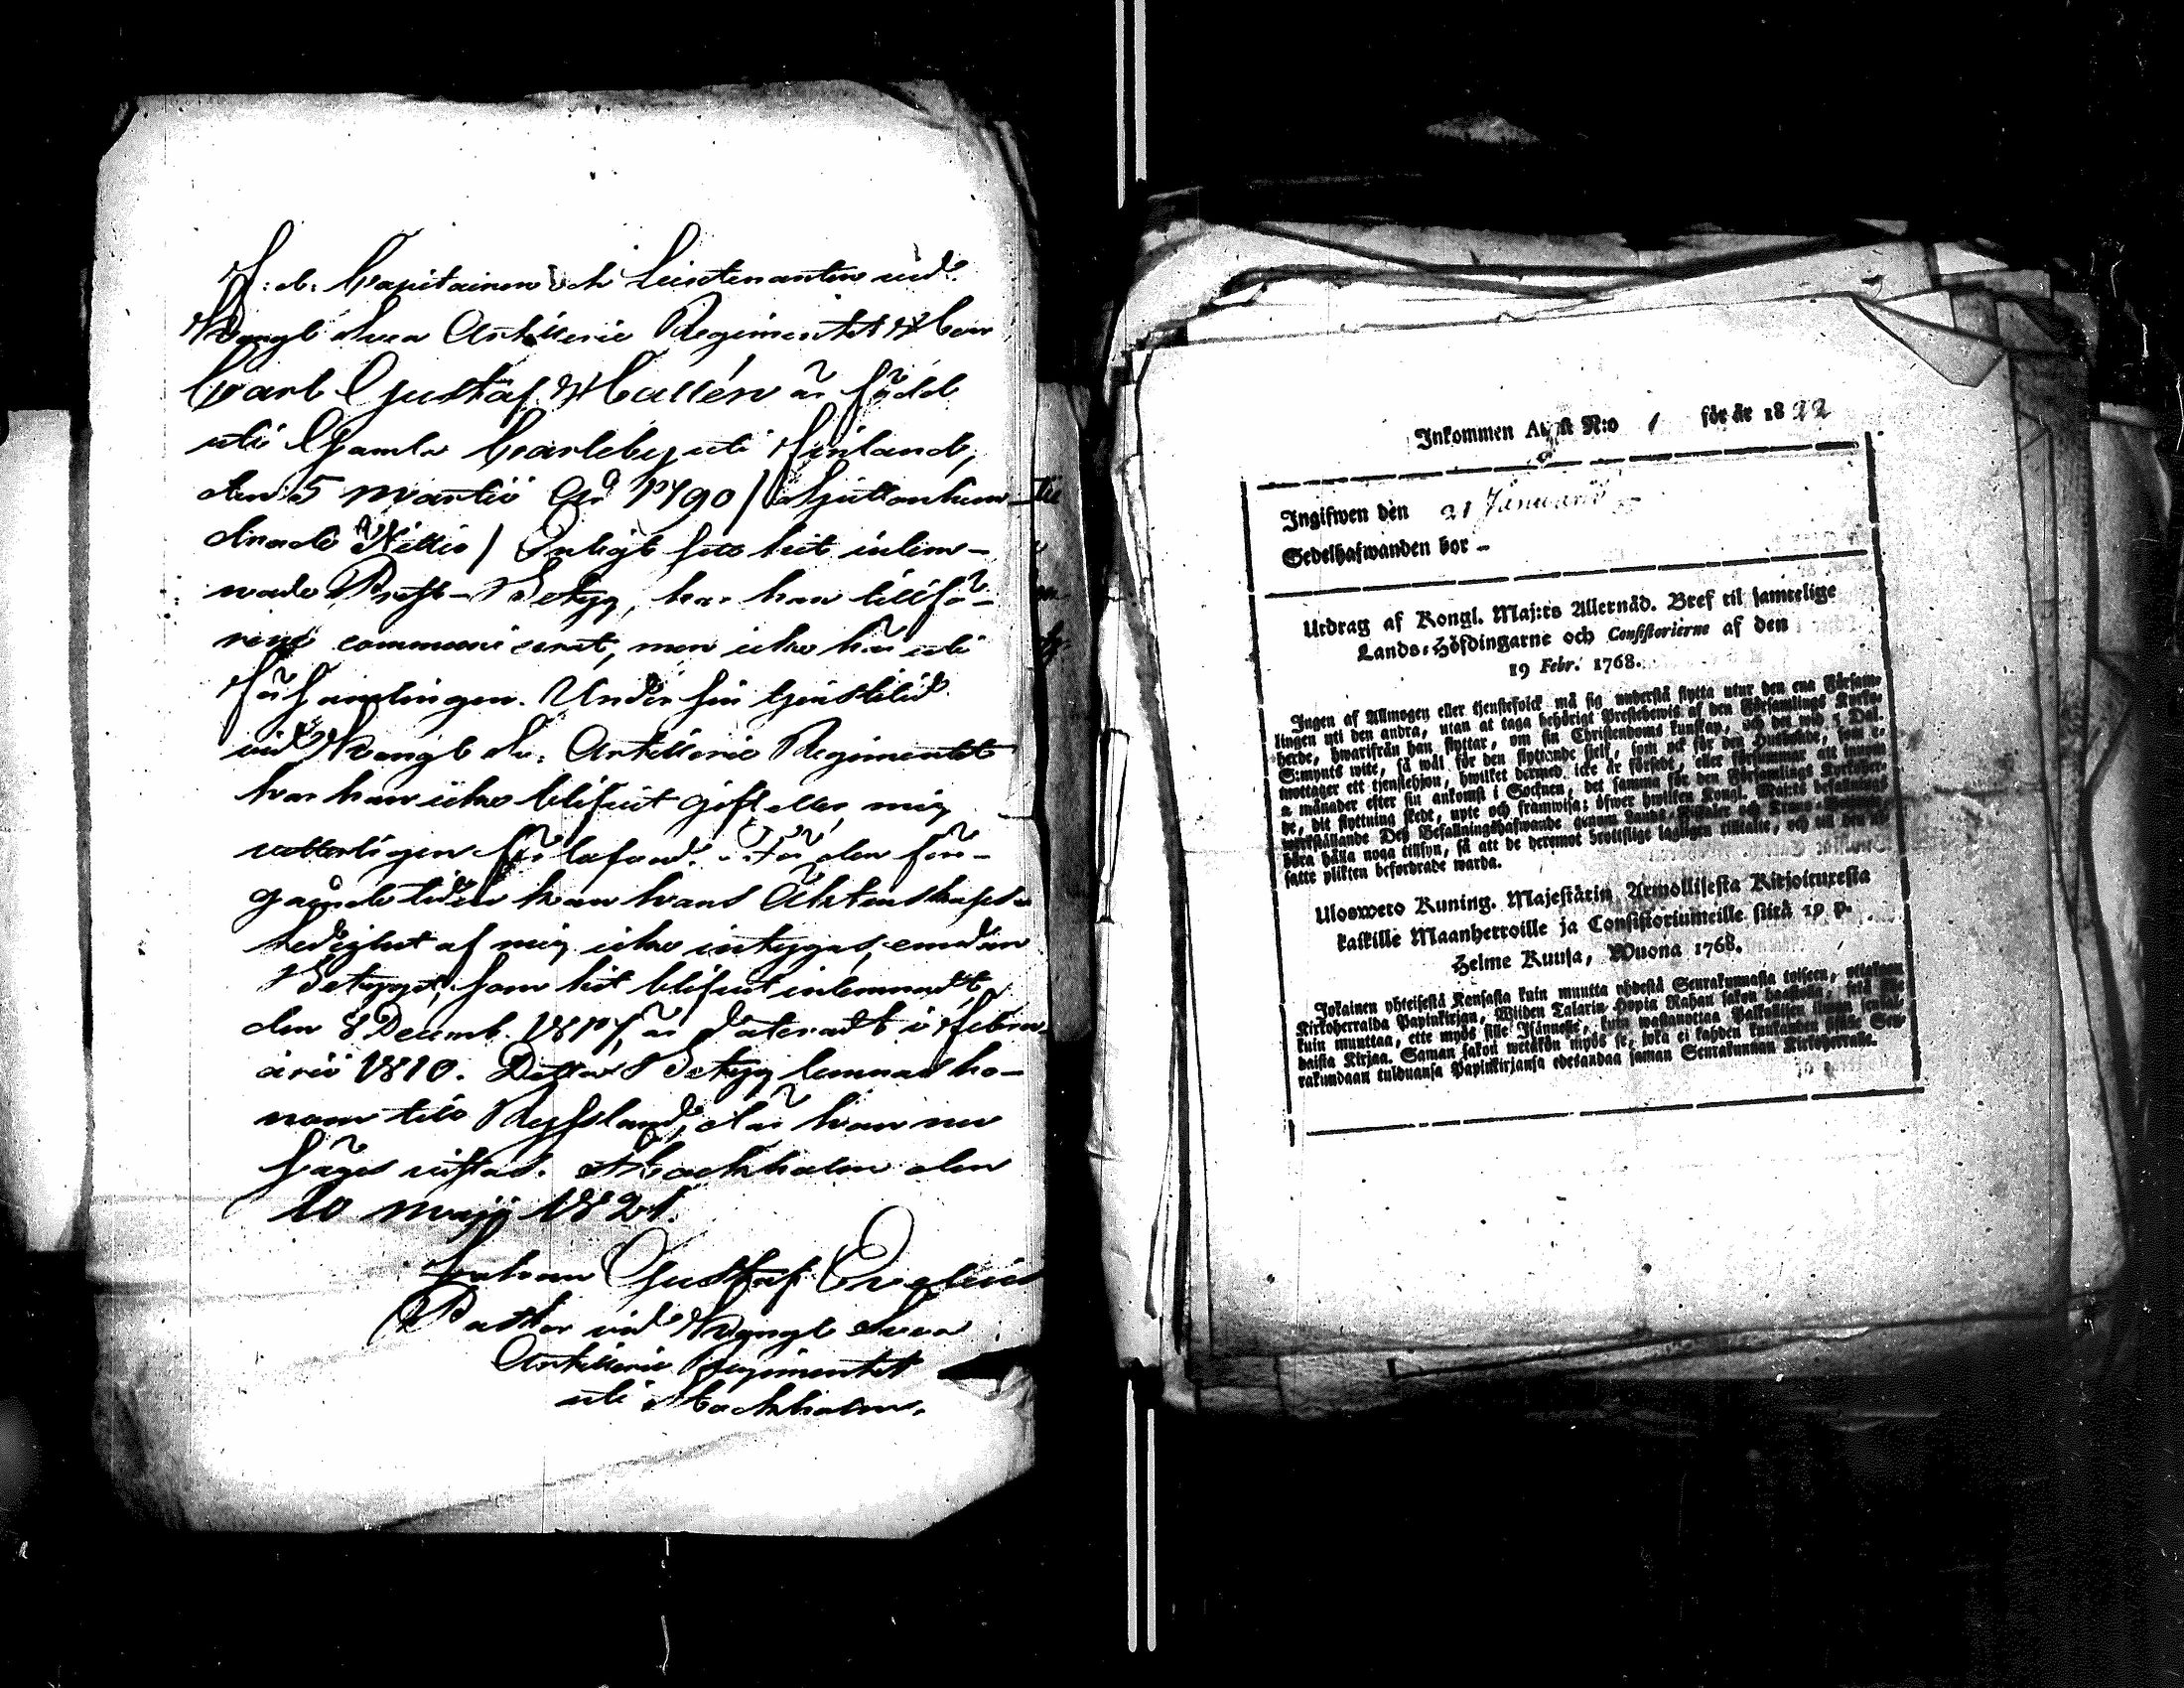 F: d. Capitainen och Lieutenanten vid
Kongl Svea Artillerie Regimentet Herr
Carl Gustaf Hallén är född
uti Gamla Carleby uti Finland,
den 5 Martii År 1790 / Sjuttonhun-
drade Nittio / Enligt hit inlem-
nade Prest-Betyg, har han tillfö-
rene communicerat, men icke här uti
Församlingen. Under sin tjenstetid
vid Kongl Sv. Artillerie Regimentet
har han icke blifvit gift eller mig
vetterligen förlofvad. För den före-
gående tiden kan hans Äktenskaps
ledighet af mig icke intygas, emedan
Betyget, som hit blifvit inlemnadt
den 8 Decemb. 1817, är dateradt i Febru-
arii 1810. Detta Betyg lemnas ho-
nom till Ryssland, där han nu
säges vistas. Stockholm den
10 Maji 1821.
Johan Gustaf
Pastor vid Kongl Svea
Artillerie Regimentet
uti Stockholm.
Inkommen Attest N:o 1 för år 1822
Ingifwen den 21 Januarii
Sedelhafwanden bor –
Utdrag af Kongl. Maj:ts Allernåd. Bref til samtelige
Lands-Höfdingarne och Consistorierne af den
19 Febr. 1768.
Ingen af Allmogen eller tjenstefolck må sig understå flytta utur den ena Församlin-
lingen uti den andra, utan at taga behörigt Prestebewis af den Församlings Kyrko-
herde, hwarifrån han flyttar, om sin Christendoms kunskap, och det wid 5 Dal.
S:mynts wite, så wäl för den flyttande sielf, som ock för den Husbonde, som e-
mottager ett tjenstehjon, hwilket dermed icke är försedt, eller försummar att innom
2 månader efter sin ankomst i Socknen, det samma för den Församlings Kyrkoher-
de, dit flyttning skedt, upte och framwisa; öfwer hwilken Kongl. Maj:ts befallnings
werkställande Deß Befallningshafwande genom Lands-
böra hålla noga tillsyn, så att de deremot brottslige lagligen tilltalte, och till den ut-
satte plikten befordrade warda.
Uloswero Kuning. Majestätin Armollisesta Kirjoituxesta
kaikille Maanherroille ja Consistoriumeille siitä 19 p.
Helme Kuusa, Wuona 1768.
Jokainen yhteisestä Kansasta kuin muutta yhdestä Seurakunnasta toiseen, ottakaan
Kirkoherralda Papinkirjan, Wiiden Talarin Hopia Rahan sakon haastolla, sekä sille
kuin muuttaa, ette myös sille Isännelle, kuin wastanottaa Palkollisen ilman senkal-
daista Kirjaa. Saman sakon wetäkön myös se, joka ei kahden kuukauden sisälle Seu-
rakundaan tulduansa Papinkirjansa edesandaa saman Seurakunnan Kirkoherralle.